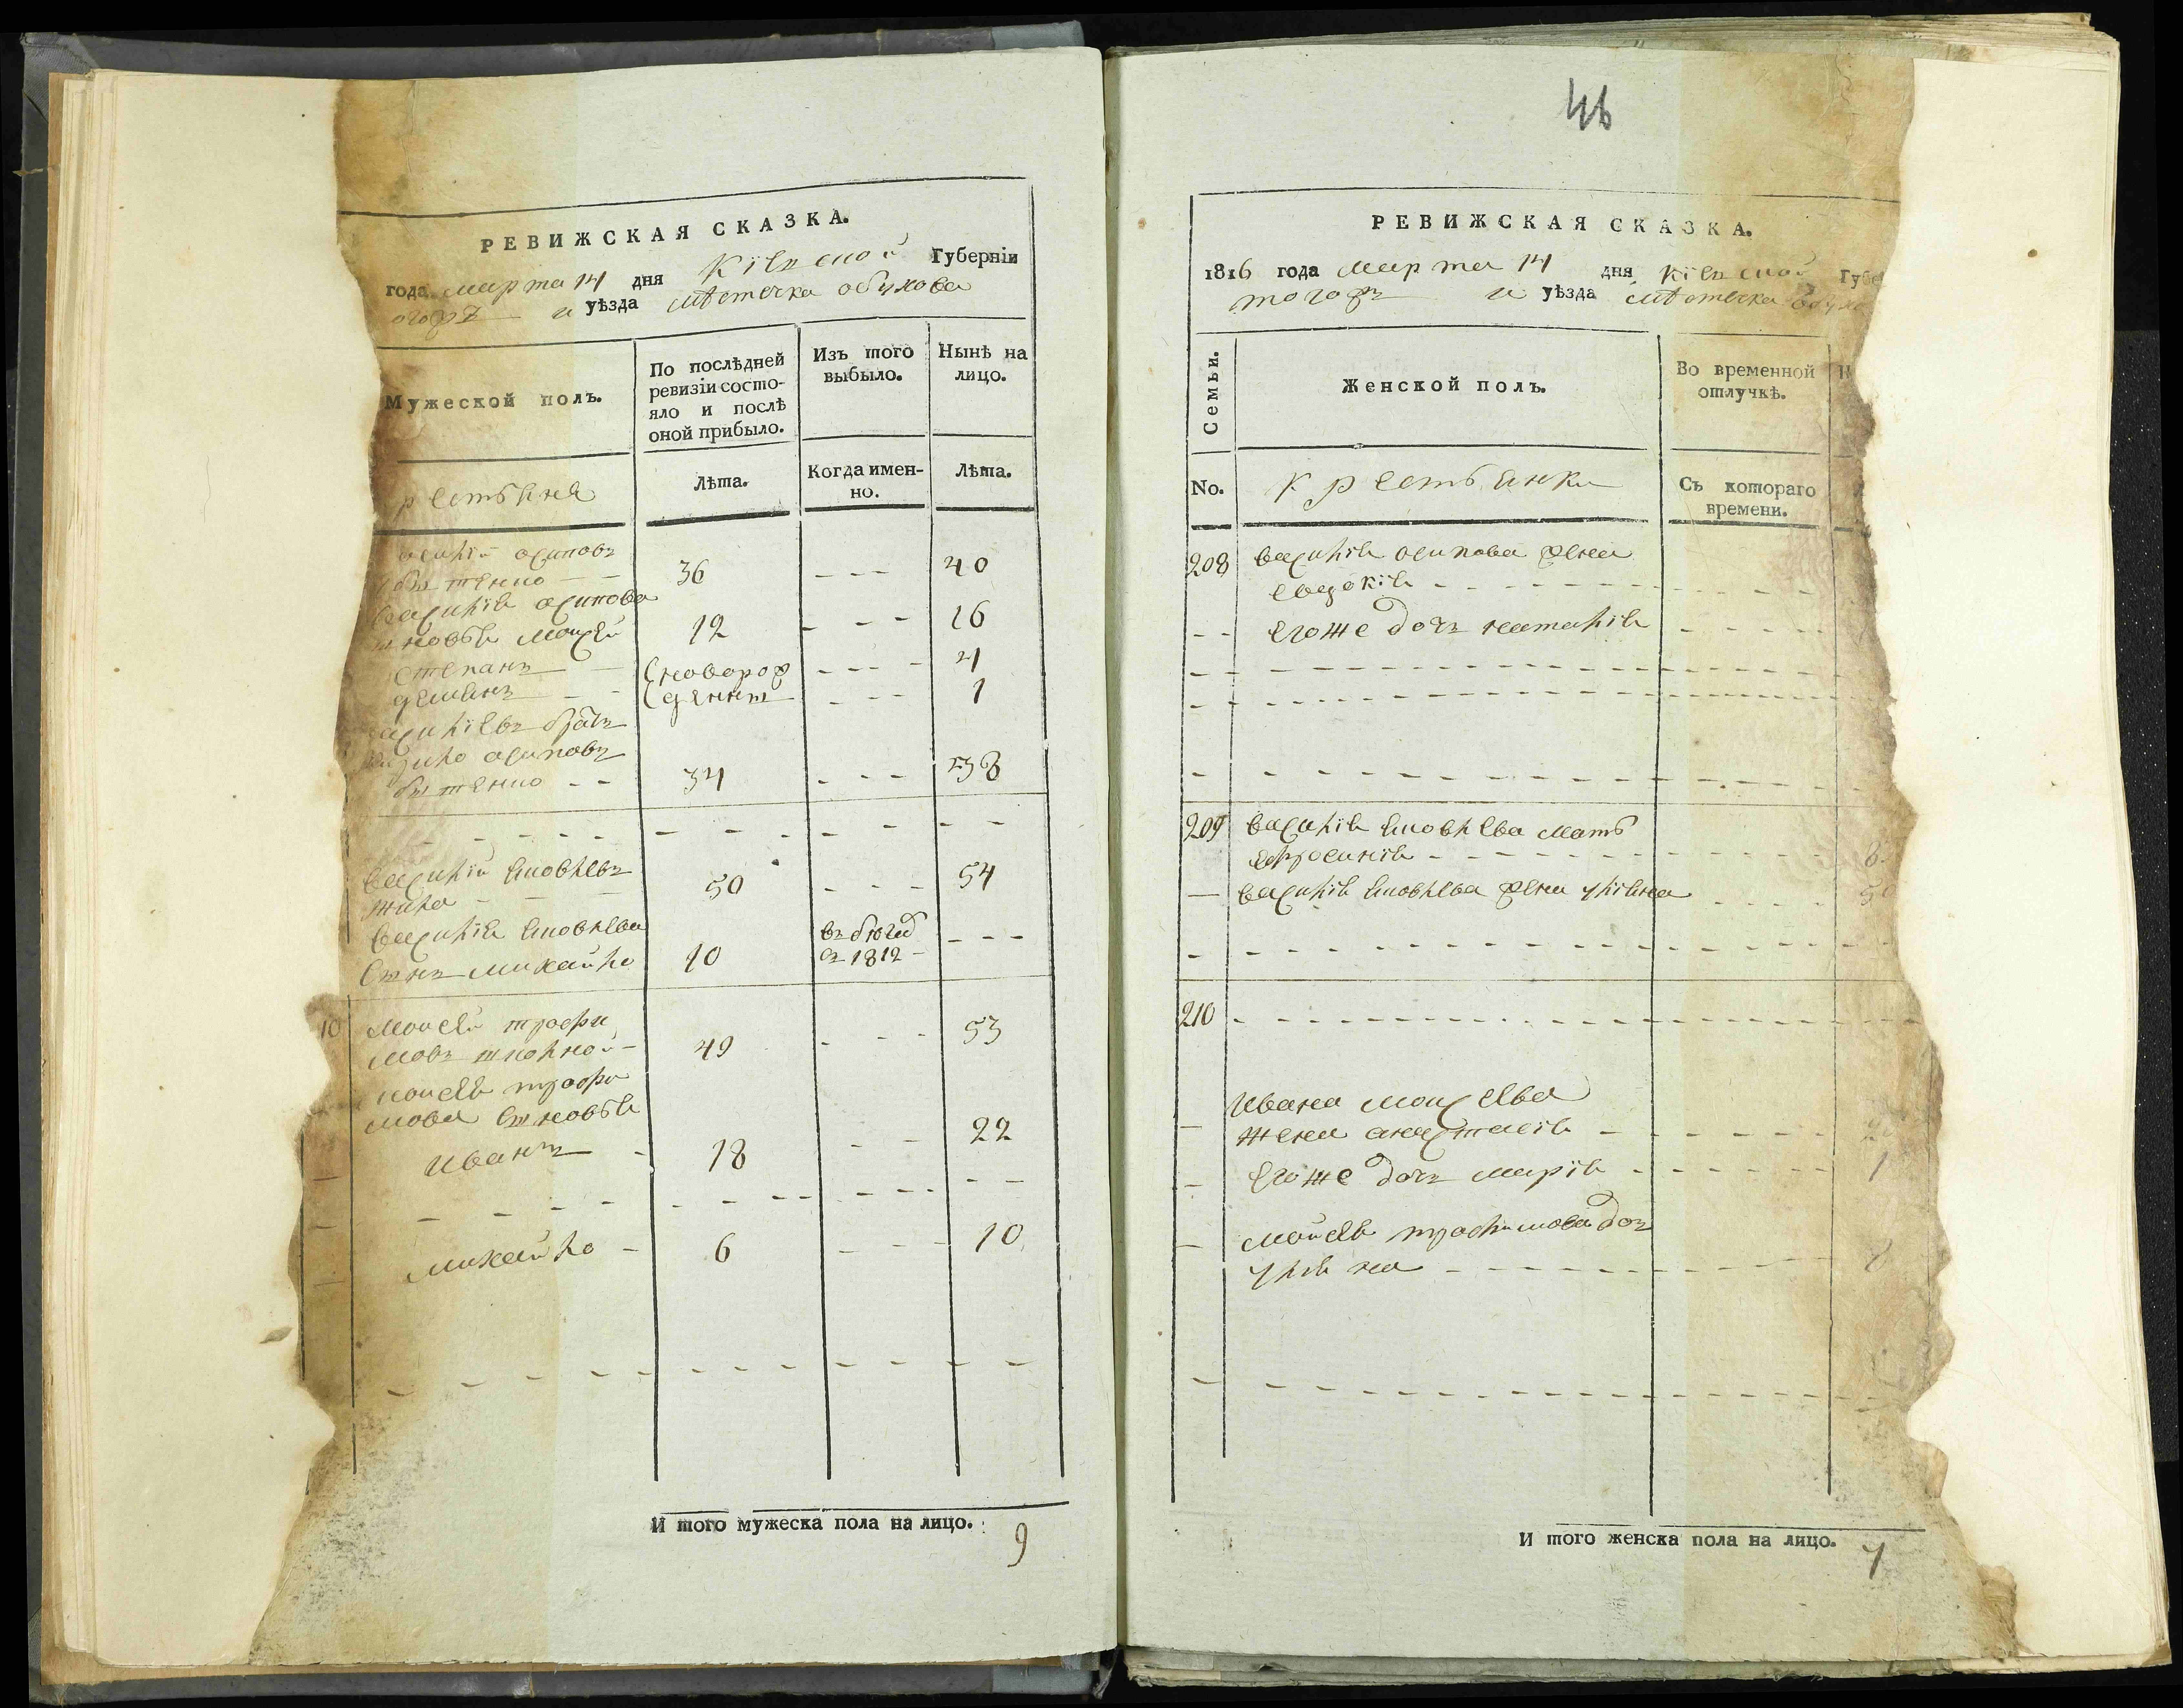 РЕВИЖСКАЯ СКАЗКА.
года марта 14 дня Кіевской Губерніи
огожъ и уѣзда мѣстечка обухова
Мужеской полъ.
По послѣдней
ревизіи состо-
яло и послѣ
оной прибыло.
Изъ того
выбыло.
Ныне на
лицо.
Лѣта.
Когда имен-
но.
Лѣта.
рестьяня
асилій осиповъ
36 - - - 40
василія осипова
новья Моисей 12 - - - 16
степанъ - (новорож - - - 4
демянъ - - (денны - - - 1
асиліевъ братъ
осиповъ
34 - - - 38
василій яковлевъ
жила - - 50 - - - 54
василія яковлева
сынъ михайло 10
въ бегаъ
съ 1812 - - - -
10 Моисей трофи
мовъ - 49 - - - 53
моисея трофи
мова сыновья
Иванъ - 18 - - 22
михайло - 6 - - - 10
И того мужеска пола на лицо. 9
46
РЕВИЖСКАЯ СКАЗКА.
1816 года марта 14 дня кіевской Губе
тогожъ и уѣзда мѣстечка обухо
Семьи.
Женской полъ.
Во временной
отлучкѣ.
No.
крестьянки
Съ котораго
времени.
208 василія осипова жена
евдокія - - - - - - -
- - егоже дочъ наталія - - - -
209 василія яковлева мать
ефросинія - - - - - - -
- василія яковлева жена уліяна - - - -
210 - - - - - - -
Ивана моисеева
- жена анастасія - - - - -
- егоже дочъ марія - - - - - 1
- моисея трофимова доч
уліяна - - - - - - -
И того женска пола на лицо. 7